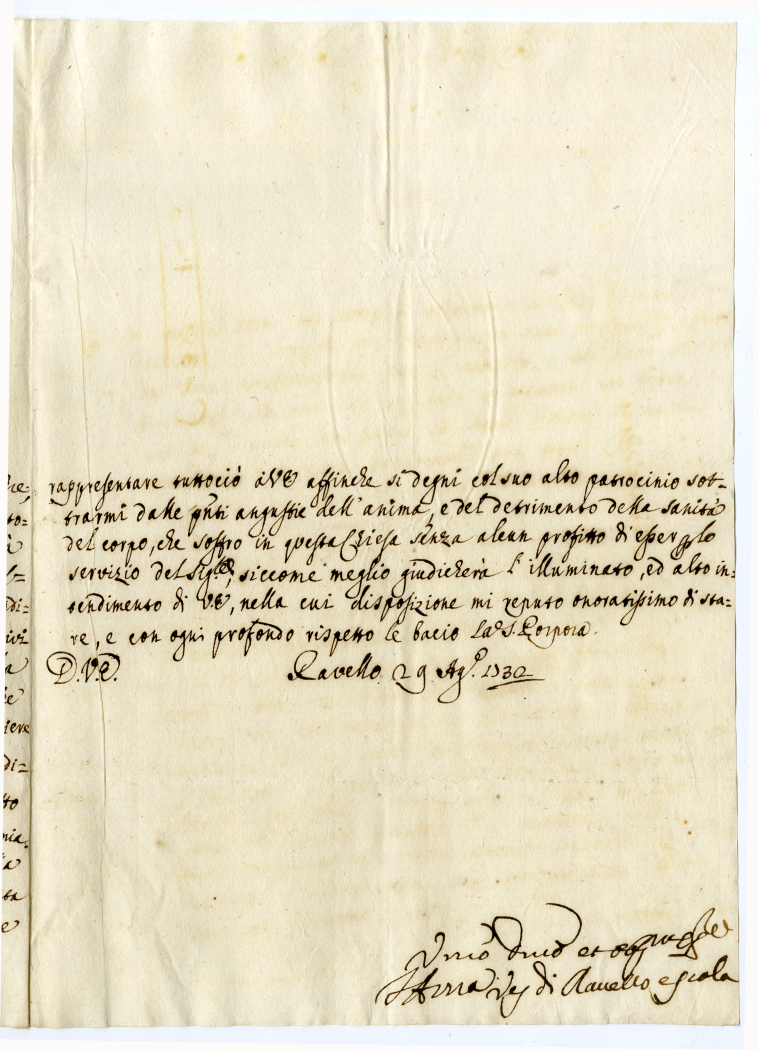 rappresentare tuttociò à VE affinche si degni col suo alto patrocinio sot-
trarmi dalle pñti angustie dell'anima, e del detrimento della sanità
del corpo, che soffro in questa Chiesa senza alcun profitto di esser p lo
servizio del Sig.re, siccome meglio giudicherà l'illuminato, ed alto in-
tendimento di VE, nella cui disposizione mi reputo onoratissimo di sta-
re, e con ogni profondo rispetto le bacio la S. Porpora.
D.V.E. Ravello 29 Ag.o 1730
di Ravello e Scala